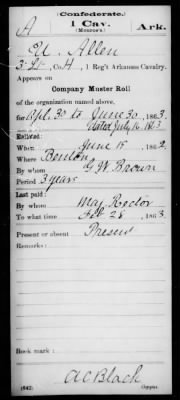 (Confederate.)
A 1 Cav. Ark.
(Monroe's)
U. Allen
3 Lt, Co. H, 1 Reg't Arkansas Cavalry.
Appears on
Company Muster Roll
of the organization named above,
for Apl. 30 to June 30, 1863.
Dated July 16, 1863
Enlisted:
When June 15, 1862.
Where Benton
By whom G. W. Brown
Period 3 years
Last paid:
By whom Maj. Rector
To what time Feb 28, 1863.
Present or absent Present
Remarks:
Book mark:
A C Black
(642) Copyist.